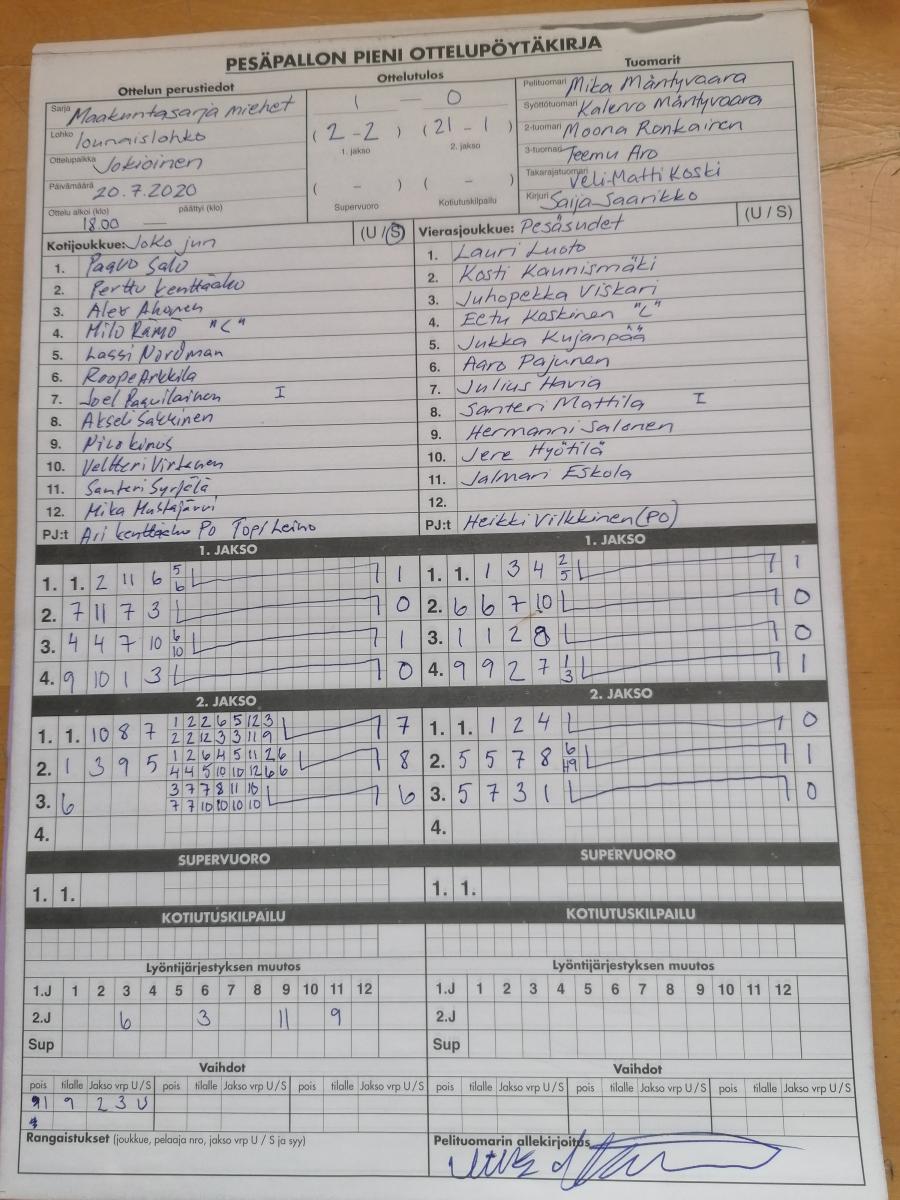 PESÄPALLON PIENI OTTELUPÖYTÄKIRJA
Ottelun perustiedot
Ottelutulos
Tuomarit
Sarja Maakuntasarja miehet
Lohko lounaislohko
Ottelupaikka Jokioinen
Päivämäärä 20.7.2020
Ottelu alkoi (klo) 18.00 päättyi (klo)
1 — 0
(2-2) (21-1)
1. jakso 2. jakso
( - ) ( - )
Supervuoro Kotiutuskilpailu
Pelituomari Mika Mäntyvaara
Syöttötuomari Kalervo Mäntyvaara
2-tuomari Moona Ronkainen
3-tuomari Teemu Aro
Takarajatuomari Veli-Matti Koski
Kirjuri Saija Saarikko
Kotijoukkue: Joko jun (U / S)
1. Paavo Salo
2. Perttu Kenttäaho
3. Alex Ahonen
4. Milo Rämö "C"
5. Lassi Nordman
6. Roope Arkkila
7. Joel Paavilainen I
8. Akseli Sakkinen
9. Nico Kinos
10. Veltteri Virtanen
11. Santeri Syrjälä
12. Mika Mustajärvi
PJ:t Ari Kenttäaho PO Topi Leino
Vierasjoukkue: Pesäsudet (U / S)
1. Lauri Luoto
2. Kosti Kaunismäki
3. Juhopekka Viskari
4. Eetu Koskinen "C"
5. Jukka Kujanpää
6. Aaro Pajunen
7. Julius Havia
8. Santeri Mattila I
9. Hermanni Salonen
10. Jere Hyötilä
11. Jalmari Eskola
12.
PJ:t Heikki Vilkkinen (PO)
1. JAKSO
1. 1. 2 11 6 5 6 1
2. 7 11 7 3 0
3. 4 4 7 10 6 10 1
4. 9 10 1 3 0
1. JAKSO
1. 1. 1 3 4 2 5 1
2. 6 6 7 10 0
3. 1 1 2 8 0
4. 9 9 2 7 1 3 1
2. JAKSO
1. 1. 10 8 7 1 2 2 6 5 12 3 7
2 2 12 3 3 11 9
2. 1 3 9 5 1 2 6 4 5 11 2 6 8
4 4 5 10 10 12 6 6
3. 6 3 7 7 8 11 10 6
7 7 10 10 10 10
4.
2. JAKSO
1. 1. 1 2 4 0
2. 5 5 7 8 6 1
3. 5 7 3 1 0
4.
SUPERVUORO
1. 1.
SUPERVUORO
1. 1.
KOTIUTUSKILPAILU
KOTIUTUSKILPAILU
Lyöntijärjestyksen muutos
1.J 1 2 3 4 5 6 7 8 9 10 11 12
2.J 6 3 11 9
Sup
Lyöntijärjestyksen muutos
1.J 1 2 3 4 5 6 7 8 9 10 11 12
2.J
Sup
Vaihdot
pois tilalle Jakso vrp U / S pois tilalle Jakso vrp U / S pois tilalle Jakso vrp U / S
9 2 3 U
Vaihdot
pois tilalle Jakso vrp U / S pois tilalle Jakso vrp U / S pois tilalle Jakso vrp U / S
Rangaistukset (joukkue, pelaaja nro, jakso vrp U / S ja syy)
Pelituomarin allekirjoitus